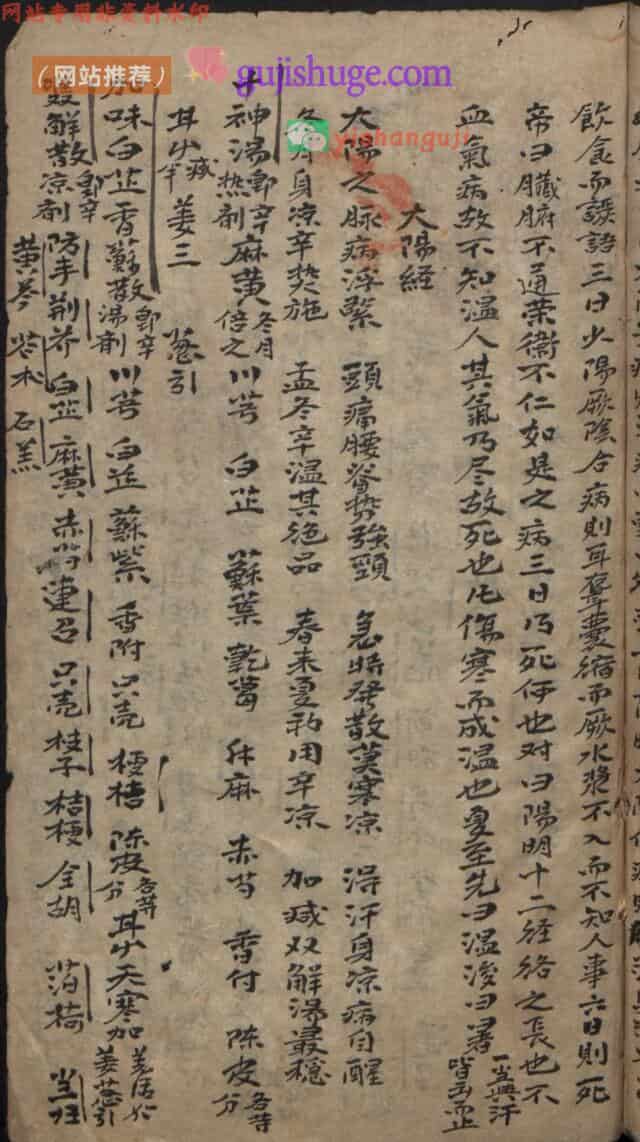 网站专用非资料水印
（网站推荐）
gujishuge.com
yishanguji
飲食而譫語三日少陽厥陰合病則耳聾囊縮而厥水漿不入而不知人事六日則死
帝曰臓腑不通荣衛不仁如是之病三日乃死何也对曰陽明十二経络之長也不
血氣病故不知温人其氣乃尽故死也凡傷寒而成温也夏至先曰温後曰暑
太陽経
太陽之脉病浮緊 頭痛腰脊势強頸 急将発散莫寒凉 得汗身凉病自醒
冬月身凉辛热施 孟冬辛温其绝品 春末夏初用辛凉 加减双解湯最穏
十神湯 熱剂 麻黄 冬月倍之 川芎 白芷 蘇葉 乾葛 升麻 赤芍 香付 陳皮 各等分
耳少 减半 姜三 葱引
加味白芷香蘇散 湯剂 川芎 白芷 蘇紫 香附 只壳 梗桔 陳皮 各等分 耳少 天寒加 姜葱引
双解散 凉剂 防丰 荆芥 白芷 麻黄 赤芍 連召 只壳 桔梗 全胡 当归
黄芩 石羔